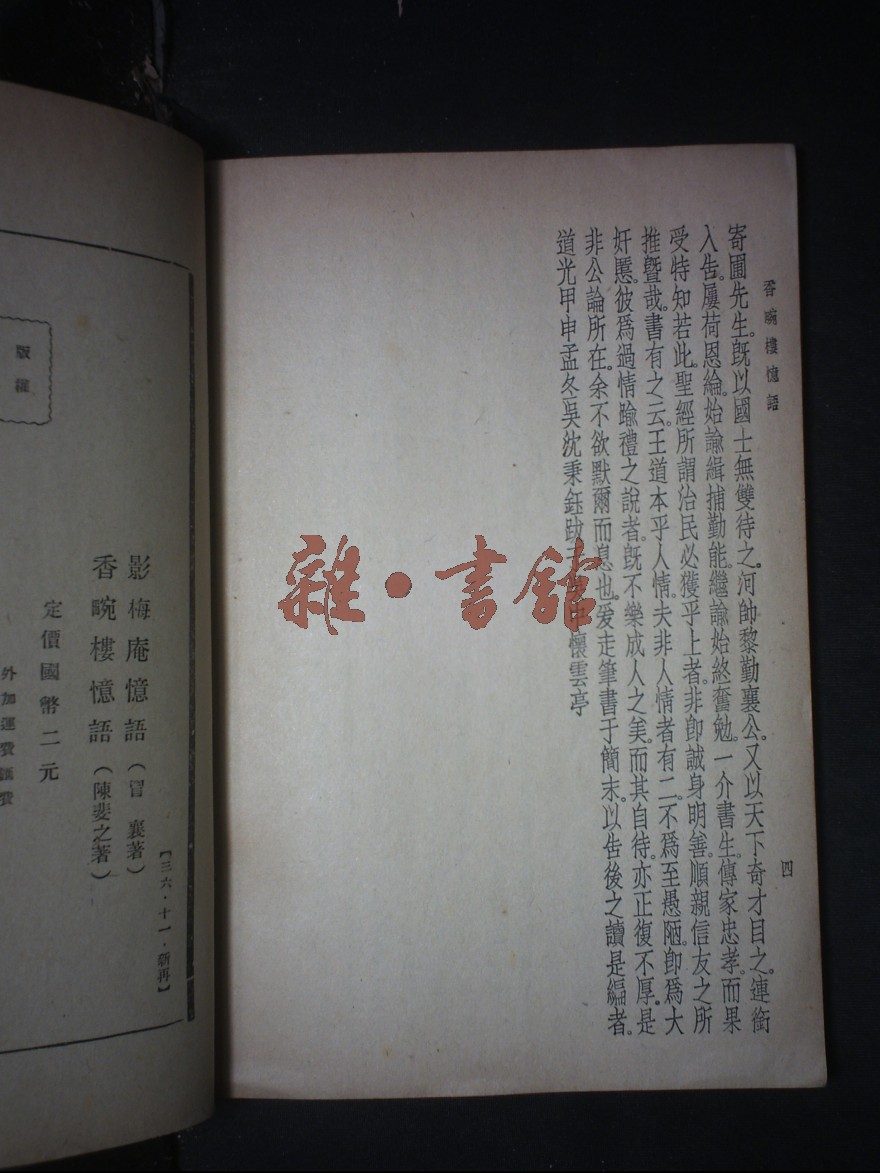 香畹樓憶語
四
寄圃先生。既以國士無雙待之。河帥黎勤襄公。又以天下奇才目之。連銜
入告。屢荷恩綸。始諭緝捕勤能。繼諭始終奮勉。一介書生。傳家忠孝。而果
受特知若此。聖經所謂治民必獲乎上者。非卽誠身明善。順親信友之所
推暨哉。書有之云。王道本乎人情。夫非人情者有二。不爲至愚陋。卽爲大
奸慝。彼爲過情踰禮之說者。旣不樂成人之美。而其自待。亦正復不厚。是
非公論所在。余不欲默爾而息也。爰走筆書于簡末。以告後之讀是編者。
道光甲申孟冬吳沈秉鈺跋于中懷雲亭
雜·書館
【三六·十一·新再】
影梅庵憶語（冒襄著）
香畹樓憶語（陳裴之著）
定價國幣二元
外加運費匯費
版權